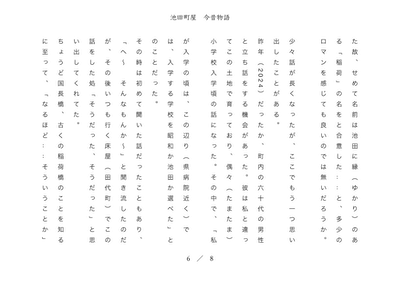 池田町屋　今昔物語
た故、せめて名前は池田に縁（ゆかり）のあ
る「稲荷」の名をと合意した：：と、多少の
ロマンを感じても良いのでは無いだろうか。
少々話が長くなったが、ここでもう一つ思い
出したことがある。
昨年（2024）だったか、町内の六十代の男性
と立ち話をする機会があった。彼は私と違っ
てこの土地で育っており、偶々（たまたま）
小学校入学頃の話になった。その中で、「私
が入学の頃は、この辺り（県病院近く）で
は、入学する学校を昭和か池田か選べた」と
のことだった。
その時は初めて聞いた話だったこともあり、
「へ～　そんなもんか～」と聞き流したのだ
が、その後いつも行く床屋（田代町）でこの
話をした処「そうだった、そうだった」と思
い出してくれてた。
ちょうど国長橋、古くの稲荷橋のことを知る
に至って、「なるほど：：そういうことか」
6 ／ 8